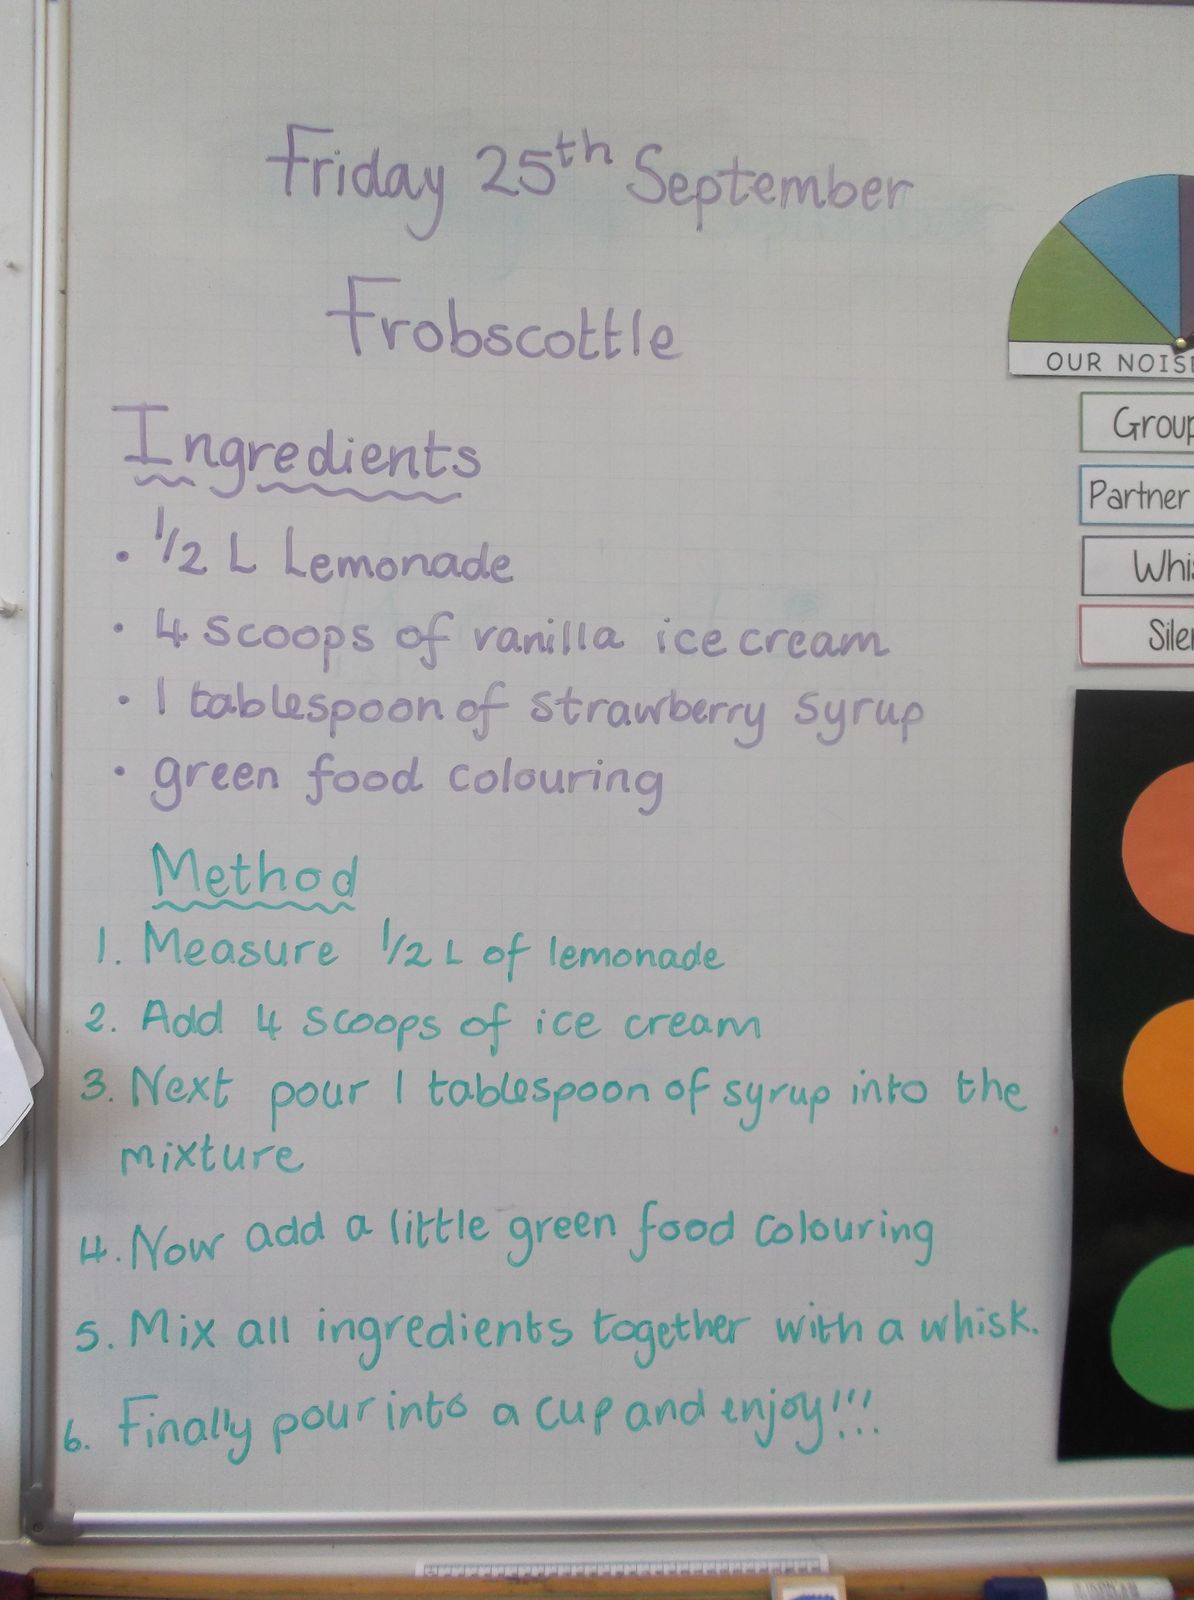 Friday 25th September
Frobscottle
Ingredients
• 1/2 L Lemonade
• 4 scoops of vanilla ice cream
• 1 tablespoon of strawberry syrup
• green food colouring
Method
1. Measure 1/2 L of lemonade
2. Add 4 scoops of ice cream
3. Next pour 1 tablespoon of syrup into the
mixture
4. Now add a little green food colouring
5. Mix all ingredients together with a whisk.
6. Finally pour into a cup and enjoy!!!
OUR
Group
Partner